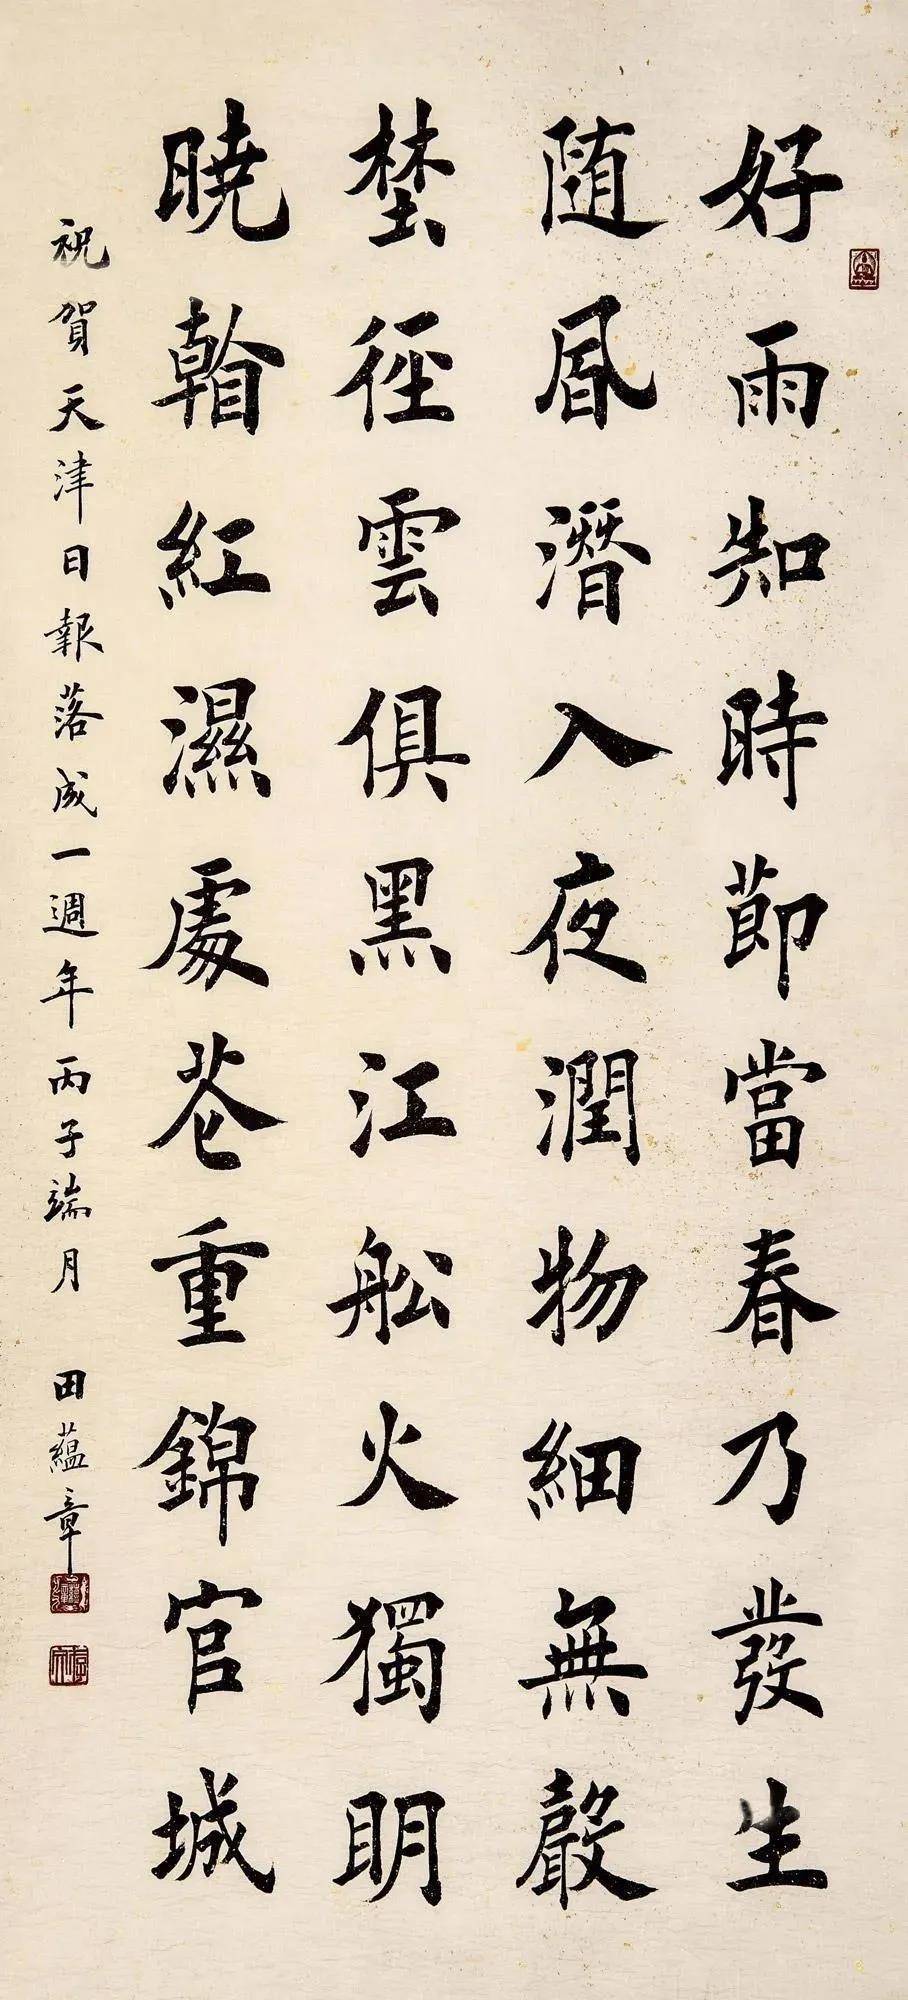 好雨知時莭當春乃發生
随風潛入夜潤物細無聲
埜徑雲俱黑江舩火獨明
曉看紅濕處花重錦官城
祝賀天津日報落成一週年丙子端月 田蘊章